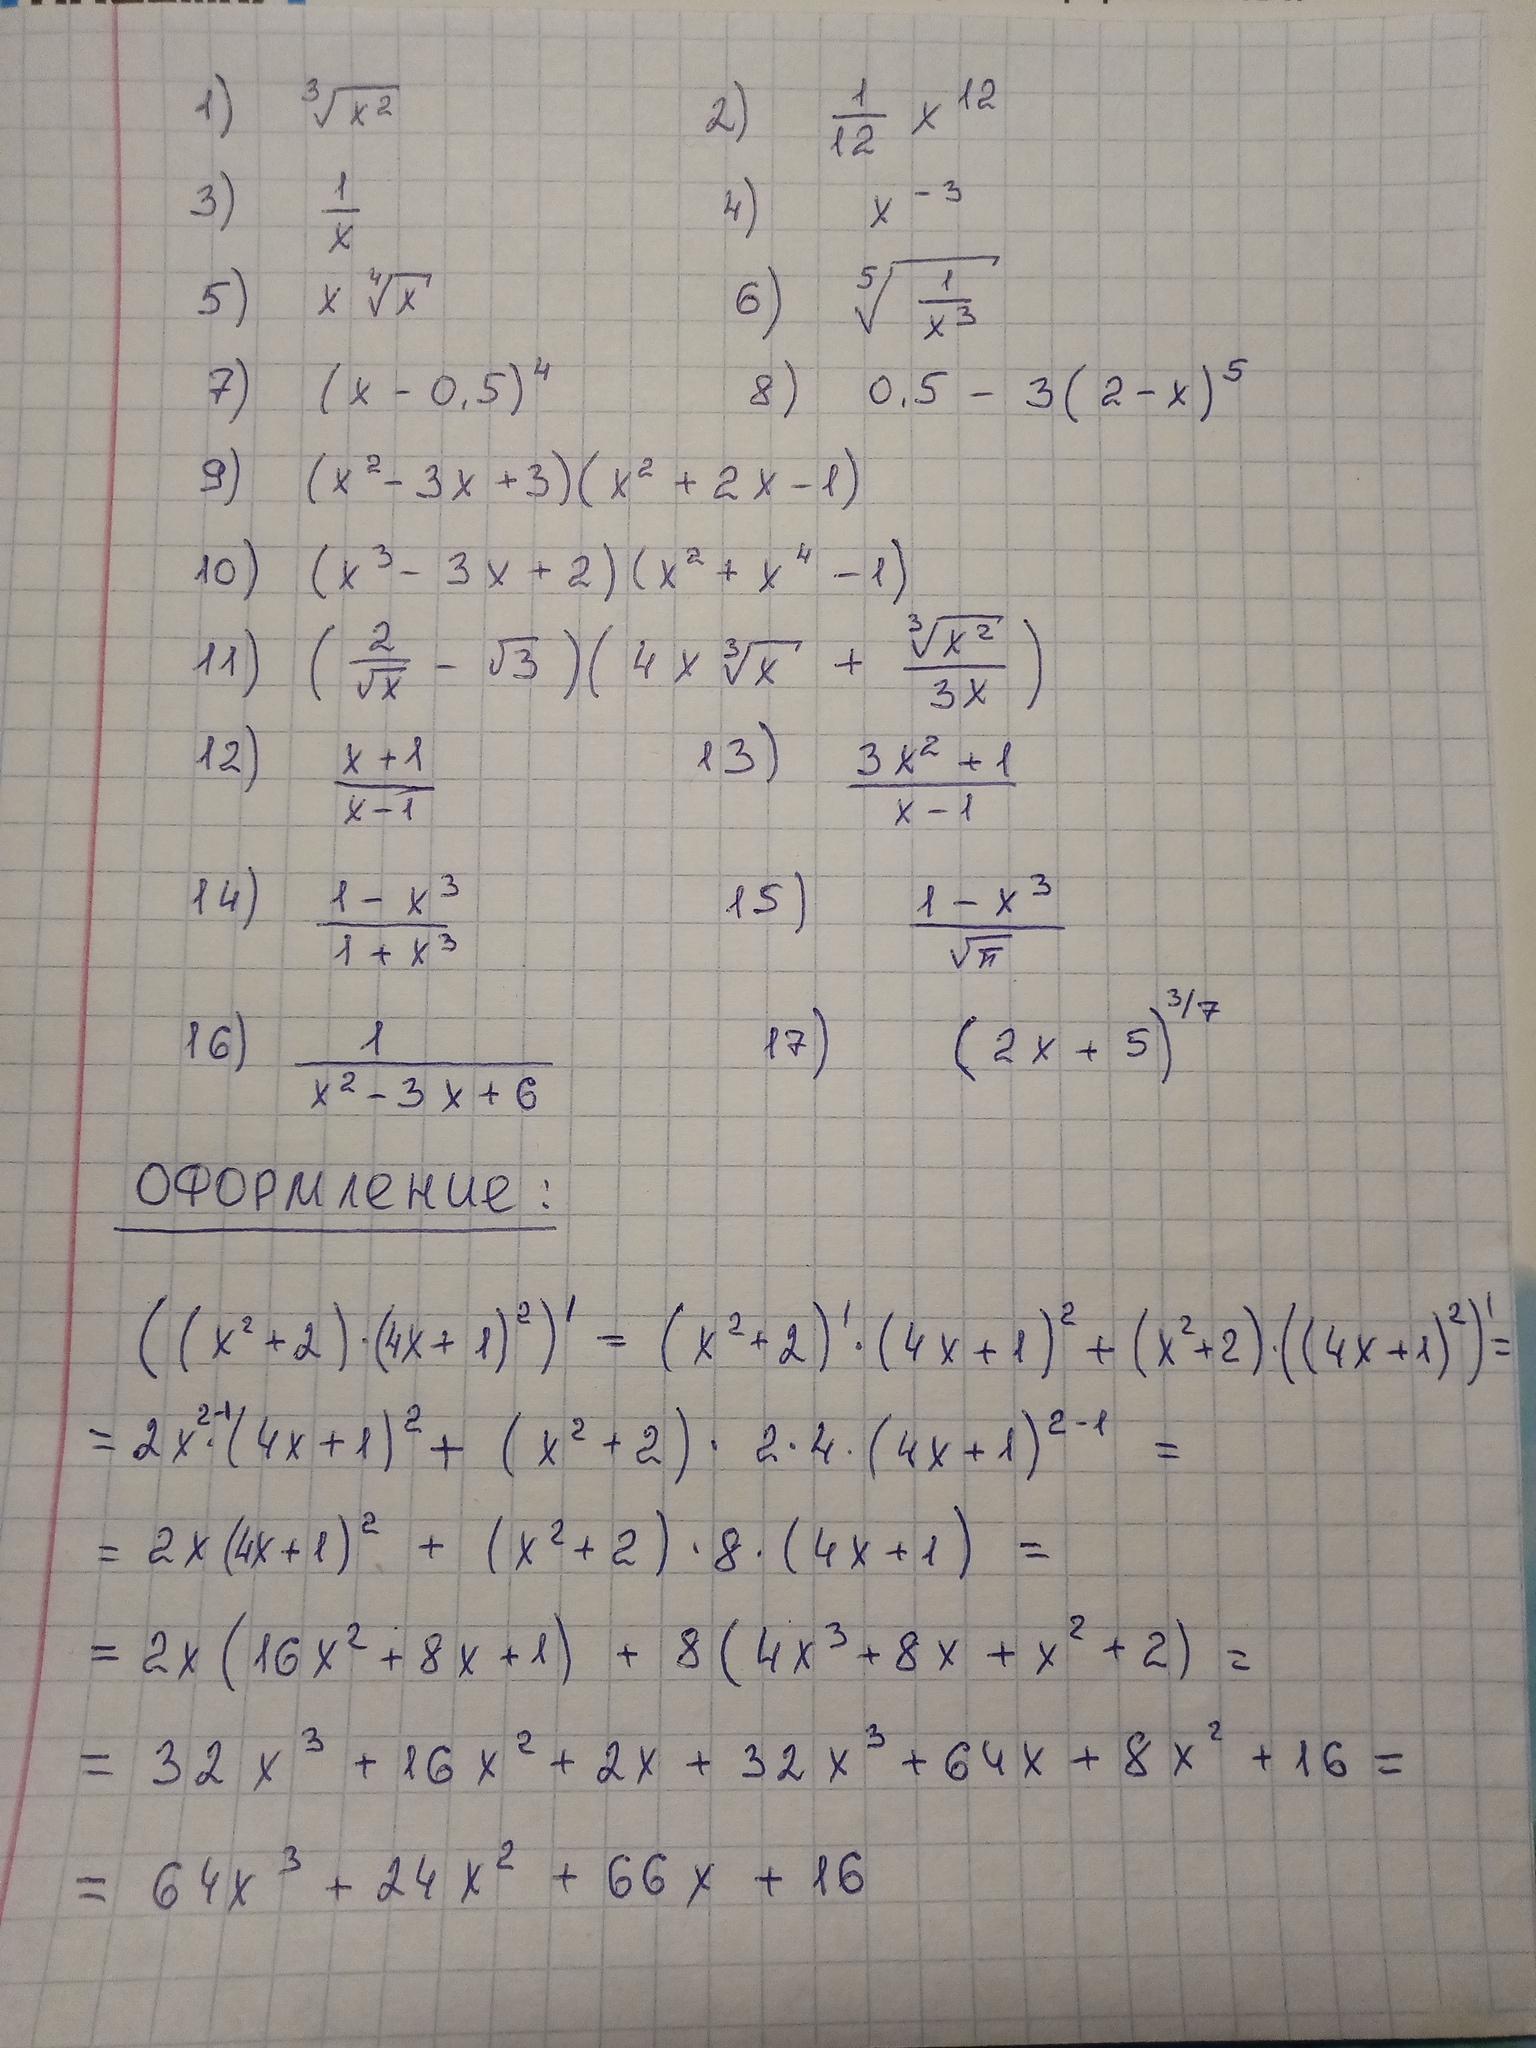 1) ∛(x²) 2) 1/12 x¹²
3) 1/x 4) x⁻³
5) x ∜x 6) ⁵√(1/x³)
7) (x - 0,5)⁴ 8) 0,5 - 3(2-x)⁵
9) (x² - 3x + 3)(x² + 2x - 1)
10) (x³ - 3x + 2)(x² + x⁴ - 1)
11) (2/√x - √3)(4x∛x + ∛(x²)/3x)
12) (x+1)/(x-1) 13) (3x²+1)/(x-1)
14) (1-x³)/(1+x³) 15) (1-x³)/√π
16) 1/(x²-3x+6) 17) (2x+5)^(3/7)
ОФОРМЛЕНИЕ:
((x²+2)·(4x+1)²)' = (x²+2)'·(4x+1)² + (x²+2)·((4x+1)²)' =
= 2x²⁻¹·(4x+1)² + (x²+2)·2·4·(4x+1)²⁻¹ =
= 2x(4x+1)² + (x²+2)·8·(4x+1) =
= 2x(16x²+8x+1) + 8(4x³+8x+x²+2) =
= 32x³+16x²+2x+32x³+64x+8x²+16 =
= 64x³+24x²+66x+16